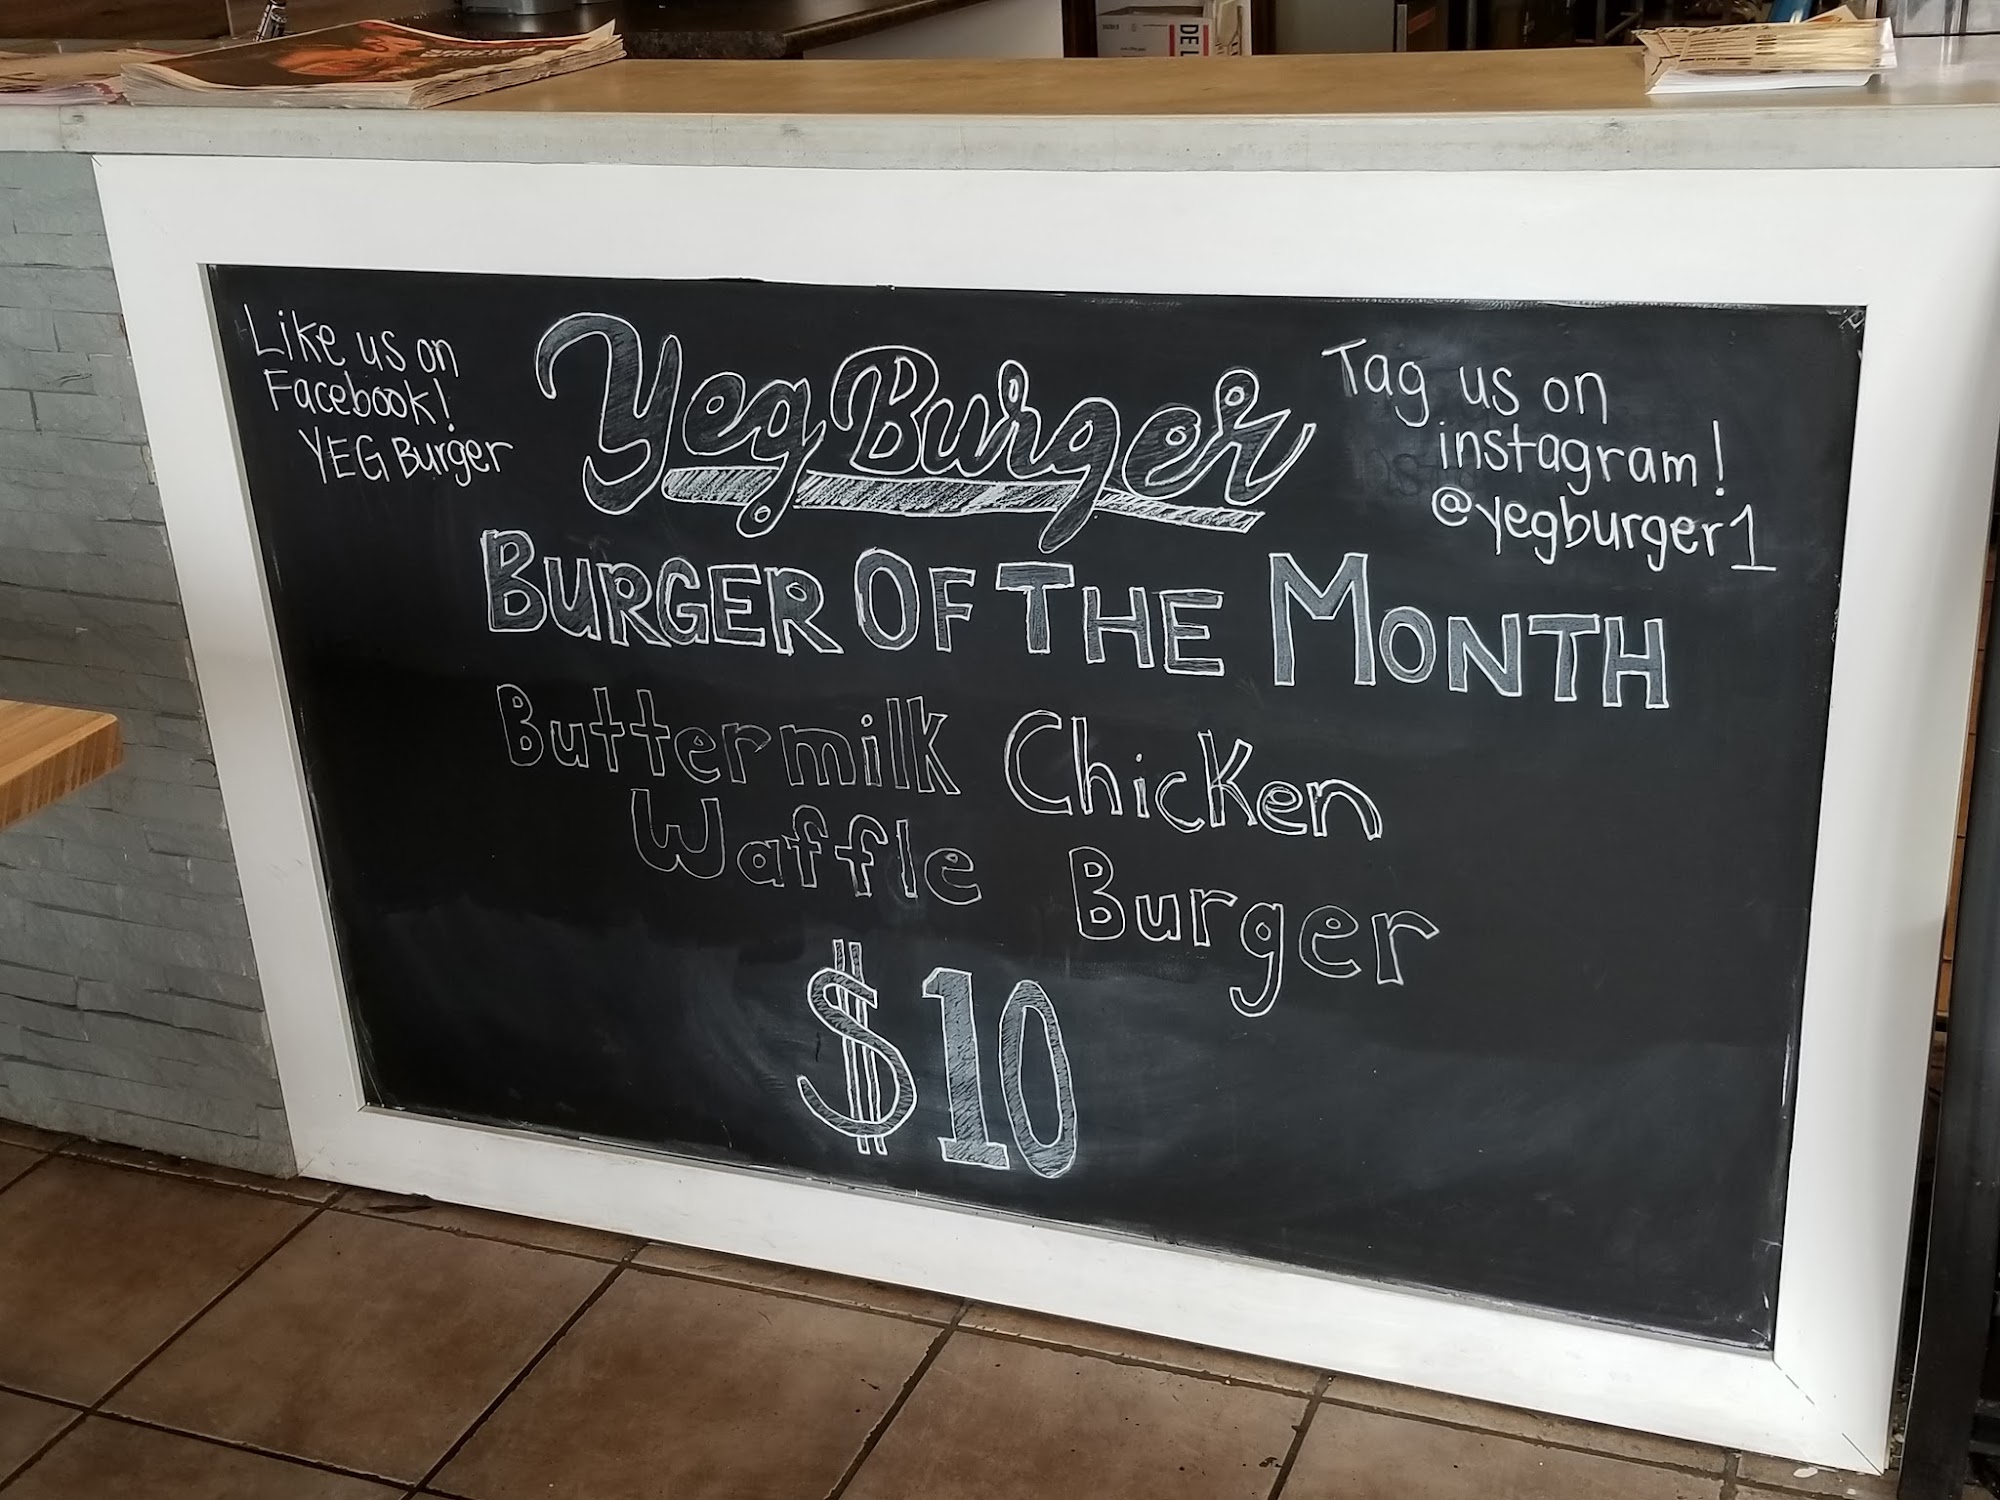 Like us on
Facebook!
YEG Burger
Yeg Burger
Tag us on
instagram!
@yegburger1
BURGER OF THE MONTH
Buttermilk Chicken
Waffle Burger
$10